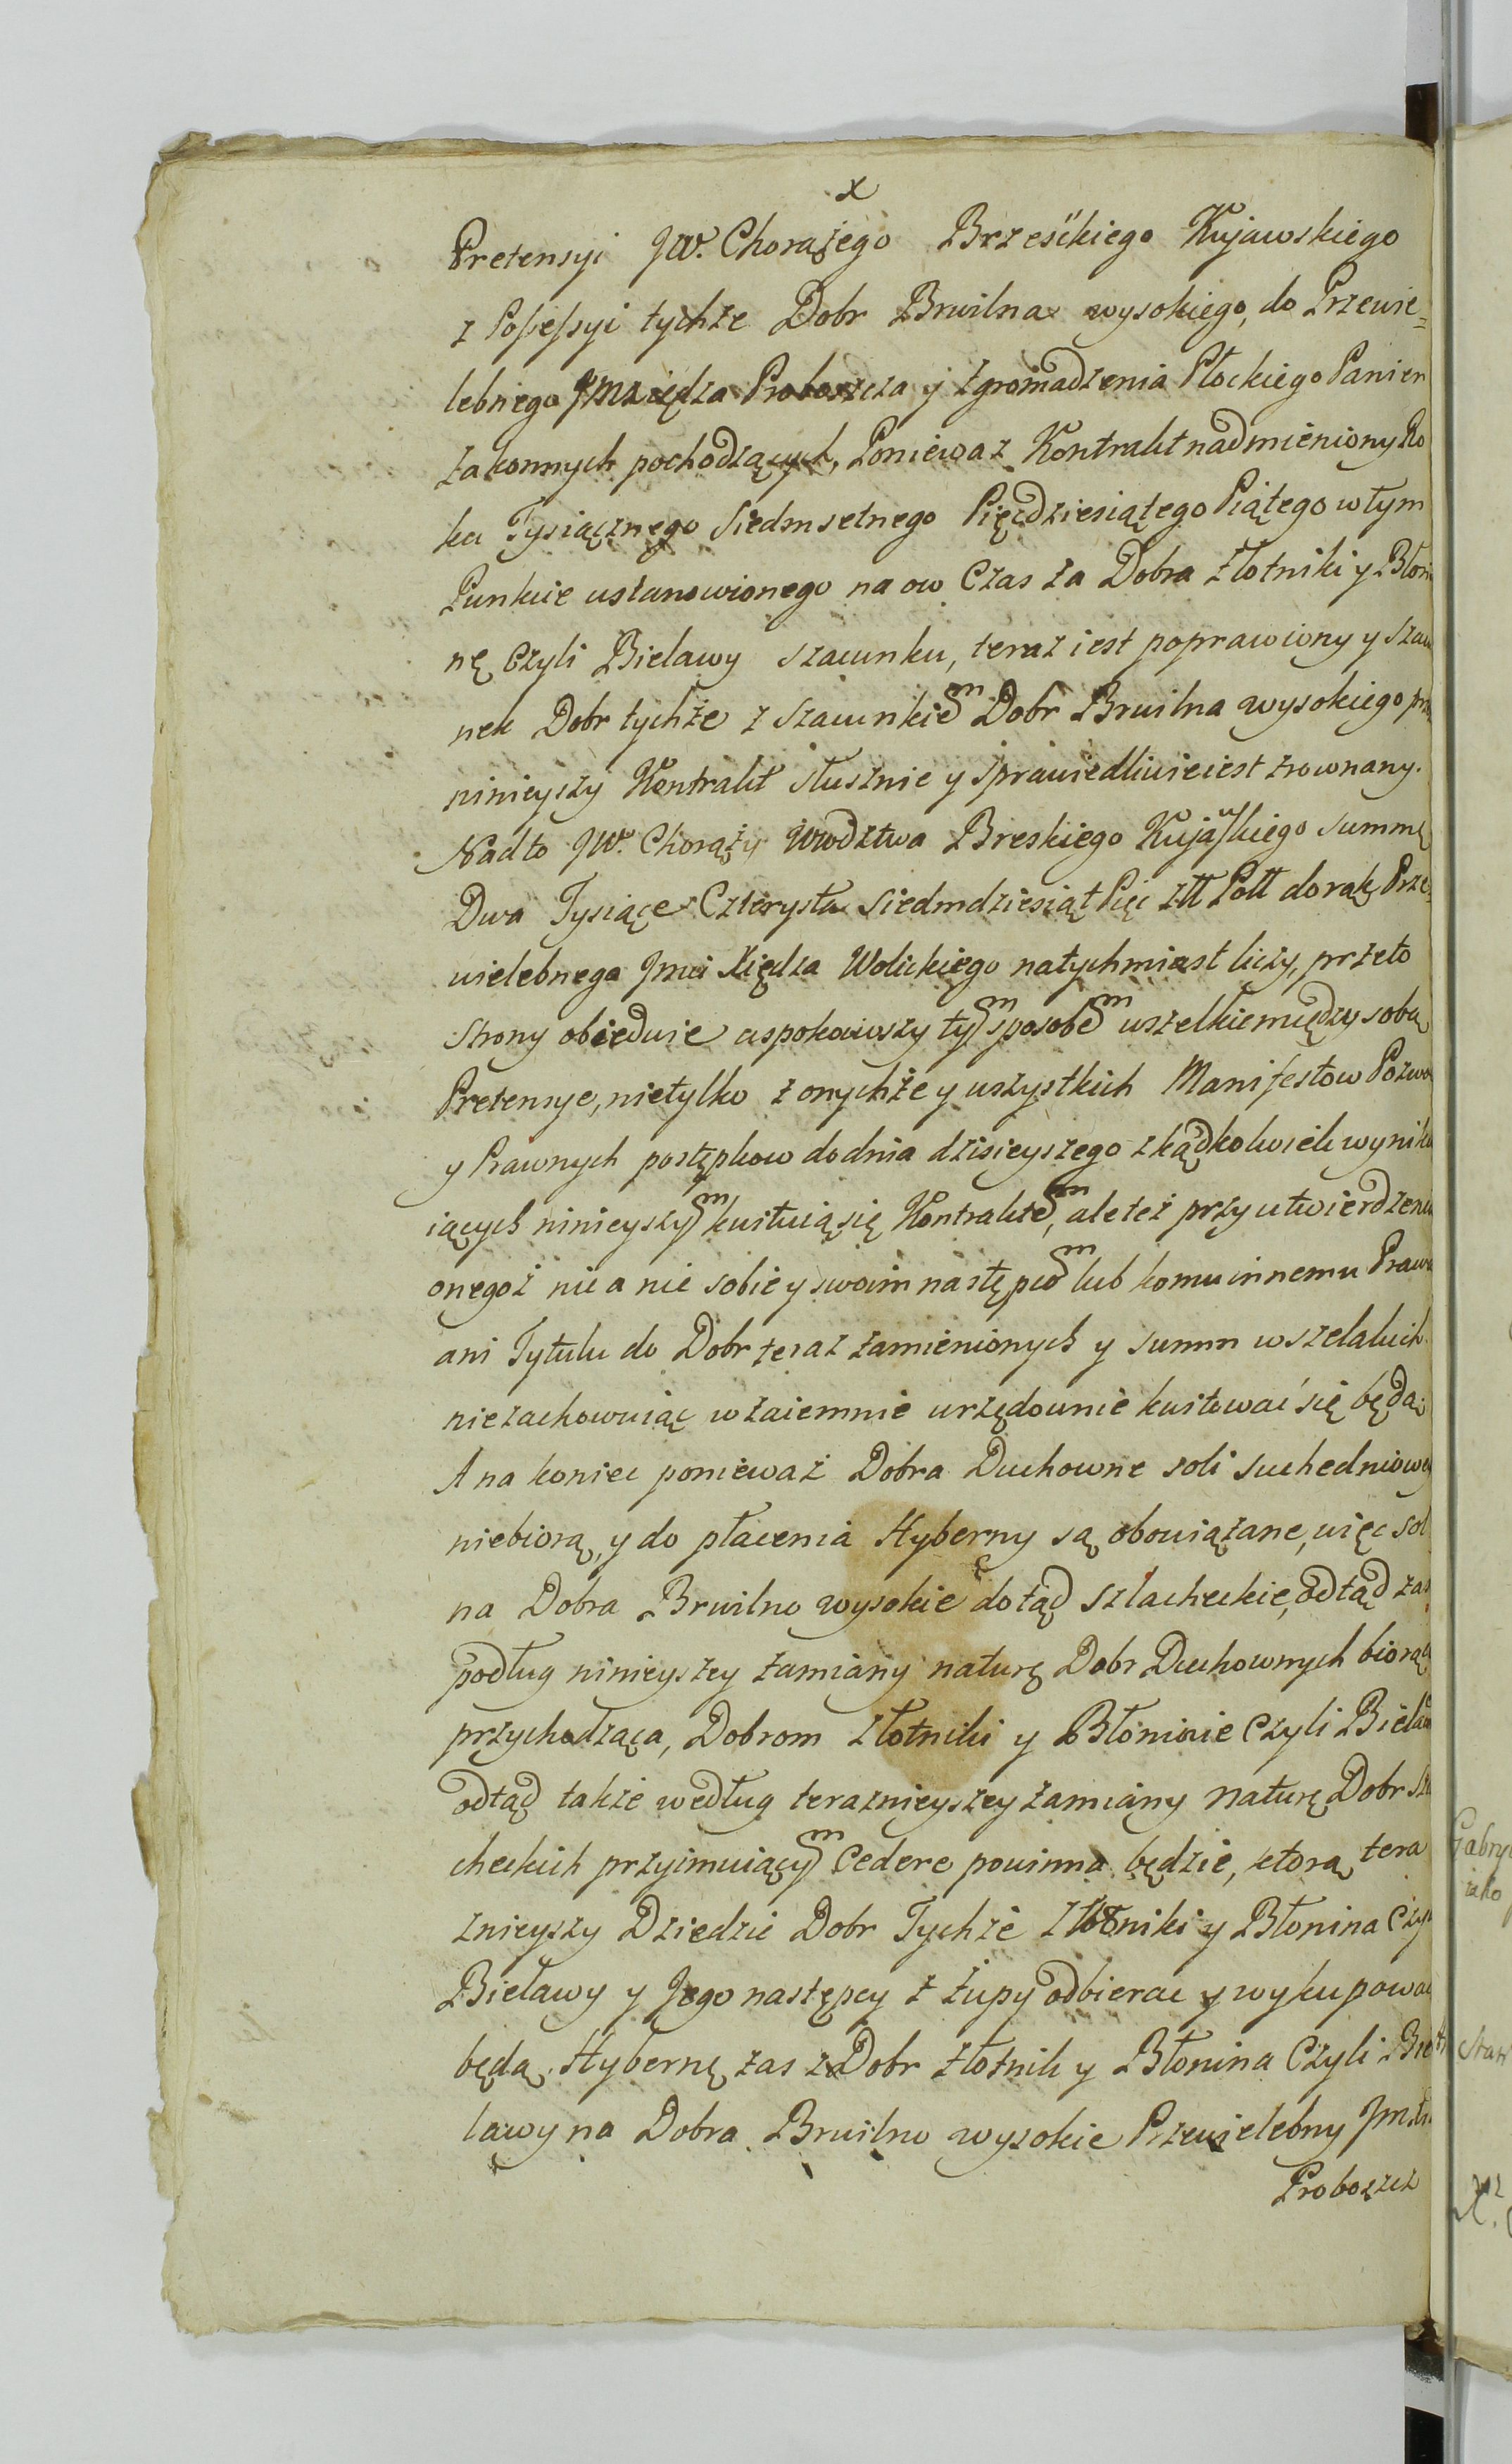 x
Pretensyi JW. Chorążego Brzesćkiego Kujawskiego
z Possessyi tychże Dobr Brwilna wysokiego, do Przewie=
lebnego Jmxiędza Proboszcza y Zgromadzenia Płockiego Panien
Zakonnych pochodzących, Poniewaz Kontrakt nadmieniony Ro
ku Tysiącznego Siedmsetnego Pięcdziesiątego Piątego w tym
Punkcie ustanowionego na ow Czas za Dobra Złotniki y Błoni
nę Czyli Bielawy szacunku, teraz iest poprawiony y Szacu
nek Dobr tychże z Szacunkiem Dobr Brwilna wysokiego prz
ninieyszy Kontrakt słusznie y sprawiedliwie iest zrownany.
Nadto JW. Chorąży Wwdztwa Breskiego Kujawskiego summę
Dwa Tysiące Czterysta Siedmdziesiąt Pięc Złt Polł do rąk Prze-
wielebnego Jmci Xiędza Wolickiego natychmiast liczy, przeto
Strony obiedwie uspokoiwszy tym sposobem wszelkie między sobą
Pretensye, nietylko z onychże y wszystkich Manifestow Pozwo
y Prawnych postępkow do dnia dzisieyszego zkądkolwiek wynika
iących ninieyszym kwituią się Kontraktem, ale też przy utwierdzeniu
onegoż nic a nic sobie y swoim następcom lub komu innemu Prawa
ani Tytułu do Dobr teraz zamienionych y summ wszelakich
niezachowuiąc wzaiemnie urzędownie kwitować się będą.
A na koniec ponieważ Dobra Duchowne soli suchedniowey
niebiorą, y do płacenia Hyberny są obowiązane, więc sol
na Dobra Brwilno wysokie dotąd szlacheckie, odtąd zas
podług ninieyszey zamiany naturę Dobr Duchownych biorąc
przychodząca, Dobrom Złotniki y Błoninie Czyli Bielaw
odtąd także według teraznieyszey zamiany naturę Dobr Szla
checkich przyimuiącym Cedere powinna będzie, ktorą tera
znieyszy Dziedzic Dobr Tychże Złotniki y Błonina Czyli
Bielawy y Jego następcy z Żupy odbierac y wykupowac
będą. Hybernę zas z Dobr Złotnik y Błonina Czyli Bie
lawy na Dobra Brwilno wysokie Przewielebny Jmxi
Proboszcz
Gabry
iako